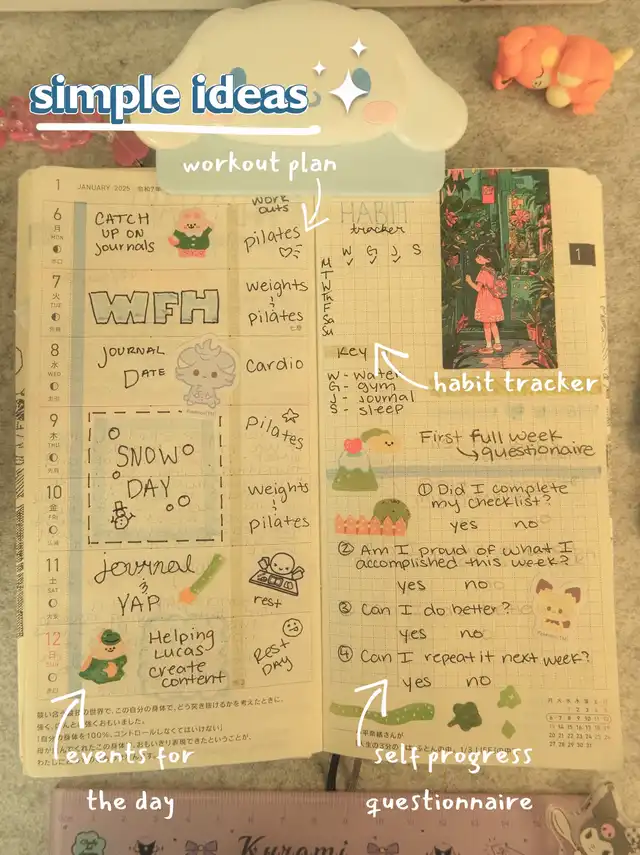 simple ideas
workout plan
1 JANUARY 2025 令和7年
6
月
MON
CATCH
UP ON
JOURNALS
work
outs
pilates
7
火
TUE
WFH
weights
&
pilates
8
水
WED
JOURNAL
DATE
Cardio
9
木
THU
SNOW
DAY
Pilates
10
金
FRI
weights
&
pilates
11
土
SAT
journal
&
YAP
rest
12
日
SUN
Helping
Lucas
create
content
REST
DAY
HABIT
tracker
W G J S
M
T
W
Th
F
Sa
Su
Key
W - water
G - gym
J - journal
S - sleep
1
habit tracker
First full week
questionaire
① Did I complete
my checklist?
yes no
② Am I proud of what I
accomplished this week?
yes no
③ Can I do better?
yes no
④ Can I repeat it next week?
yes no
events for
the day
self progress
questionnaire
Kuromi